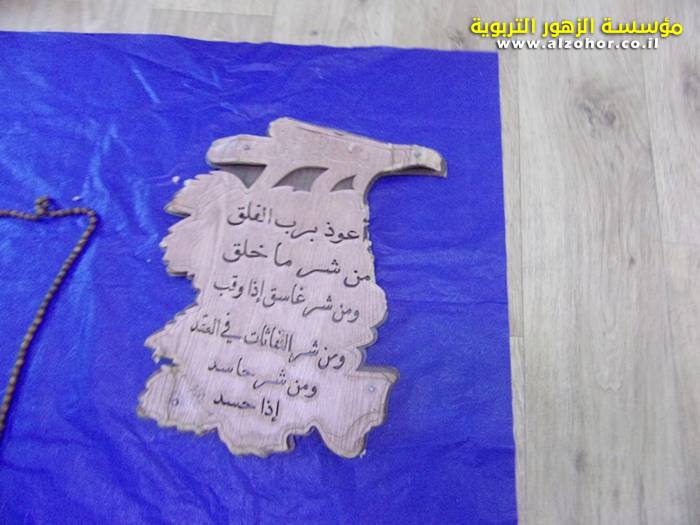 مؤسسة الزهور التربوية
www.alzohor.co.il
أعوذ برب الفلق
من شر ما خلق
ومن شر غاسق إذا وقب
ومن شر النفاثات في العقد
ومن شر حاسد
إذا حسد